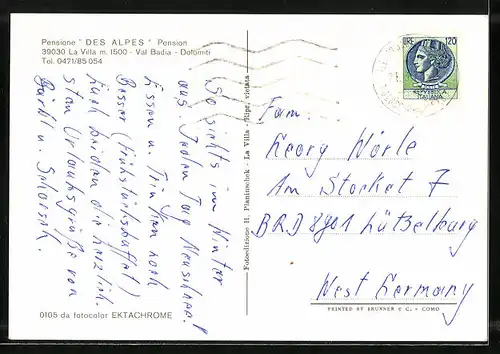 Pensione " DES ALPES " Pension
39030 La Villa m. 1500 - Val Badia - Dolomiti
Tel. 0471/85 054
So siehts im Winter
aus. Jeden Tag Neuschnee!
Essen u. Trinken noch
Besser (Frühstücksbuffet)
Euch beiden die herzlich-
sten Urlaubsgrüße von
Bärbl u. Schorsch.
0105 da fotocolor EKTACHROME
Fotoedizione H. Planinschek - La Villa - Ripr. vietata
LIRE 120
REPUBBLICA
ITALIANA
Fam:
Georg Wörle
Am Stocket 7
BRD 8901 Lützelburg
West Germany
PRINTED BY BRUNNER & C. - COMO